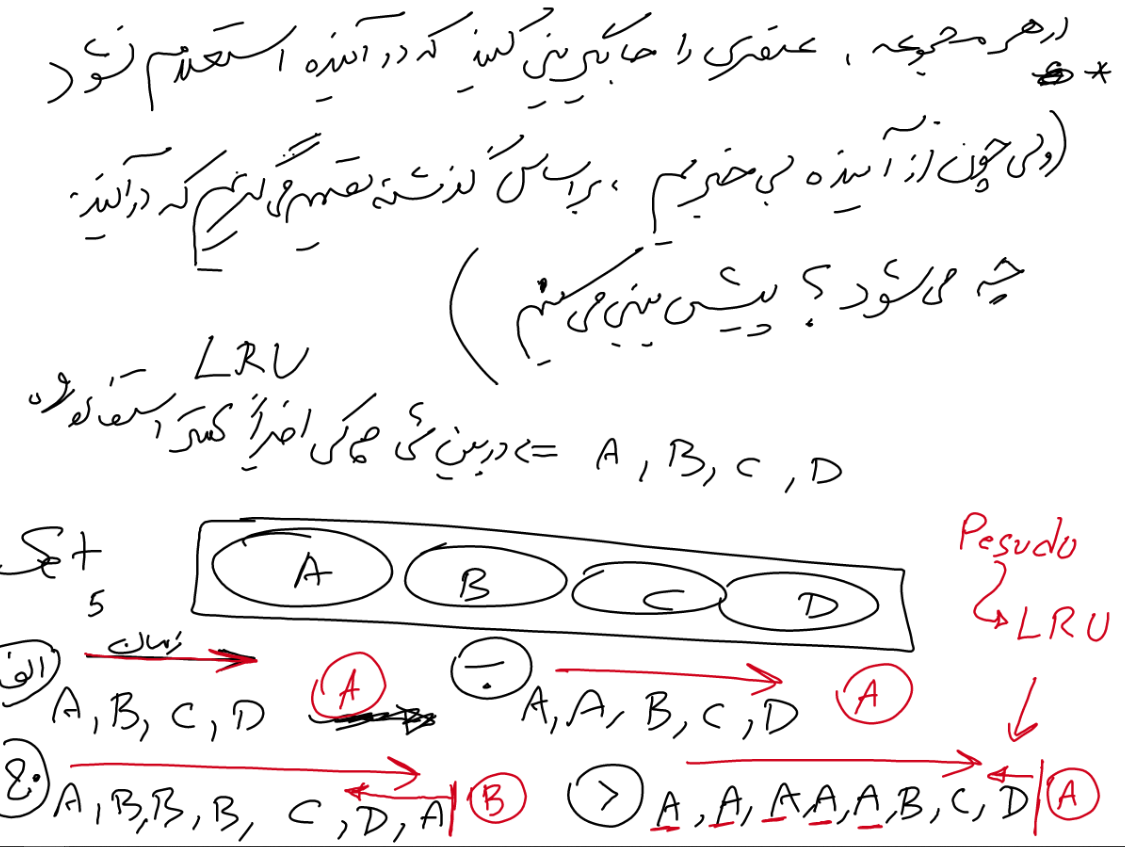 * از هر مجموعه، عنصری را جایگزینی کنید که در آینده استعلام نشود
(ولی چون از آینده بی خبریم، براساس گذشته تصمیم می گیریم که در آینده
چه می شود؟ پیش بینی می کنیم)
LRU
A, B, C, D => در بین شی کی اخیراً کمتر استفاده
Set 5
A B C D
Pesudo
LRU
الف) زمان
A, B, C, D A
ب A, A, B, C, D A
ج A, B, B, B, C, D, A B
د A, A, A, A, A, B, C, D A